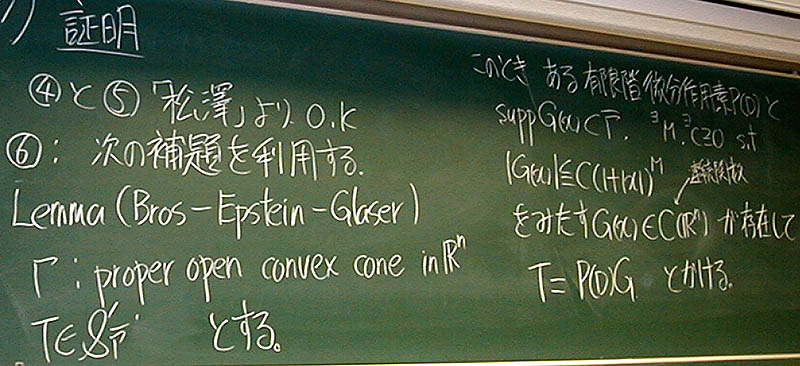 証明
④と⑤「松澤」より O.K
⑥: 次の補題を利用する.
Lemma (Bros-Epstein-Glaser)
Γ: proper open convex cone in ℝⁿ
T∈𝒮'_Γ̄ とする。
このとき ある有限階微分作用素P(D)と
supp G(x) ⊂ Γ̄. ∃M, ∃C≥0 s.t
|G(x)| ≦ C(1+|x|)^M 連続関数
をみたすG(x)∈C(ℝⁿ) が存在して
T = P(D)G とかける。